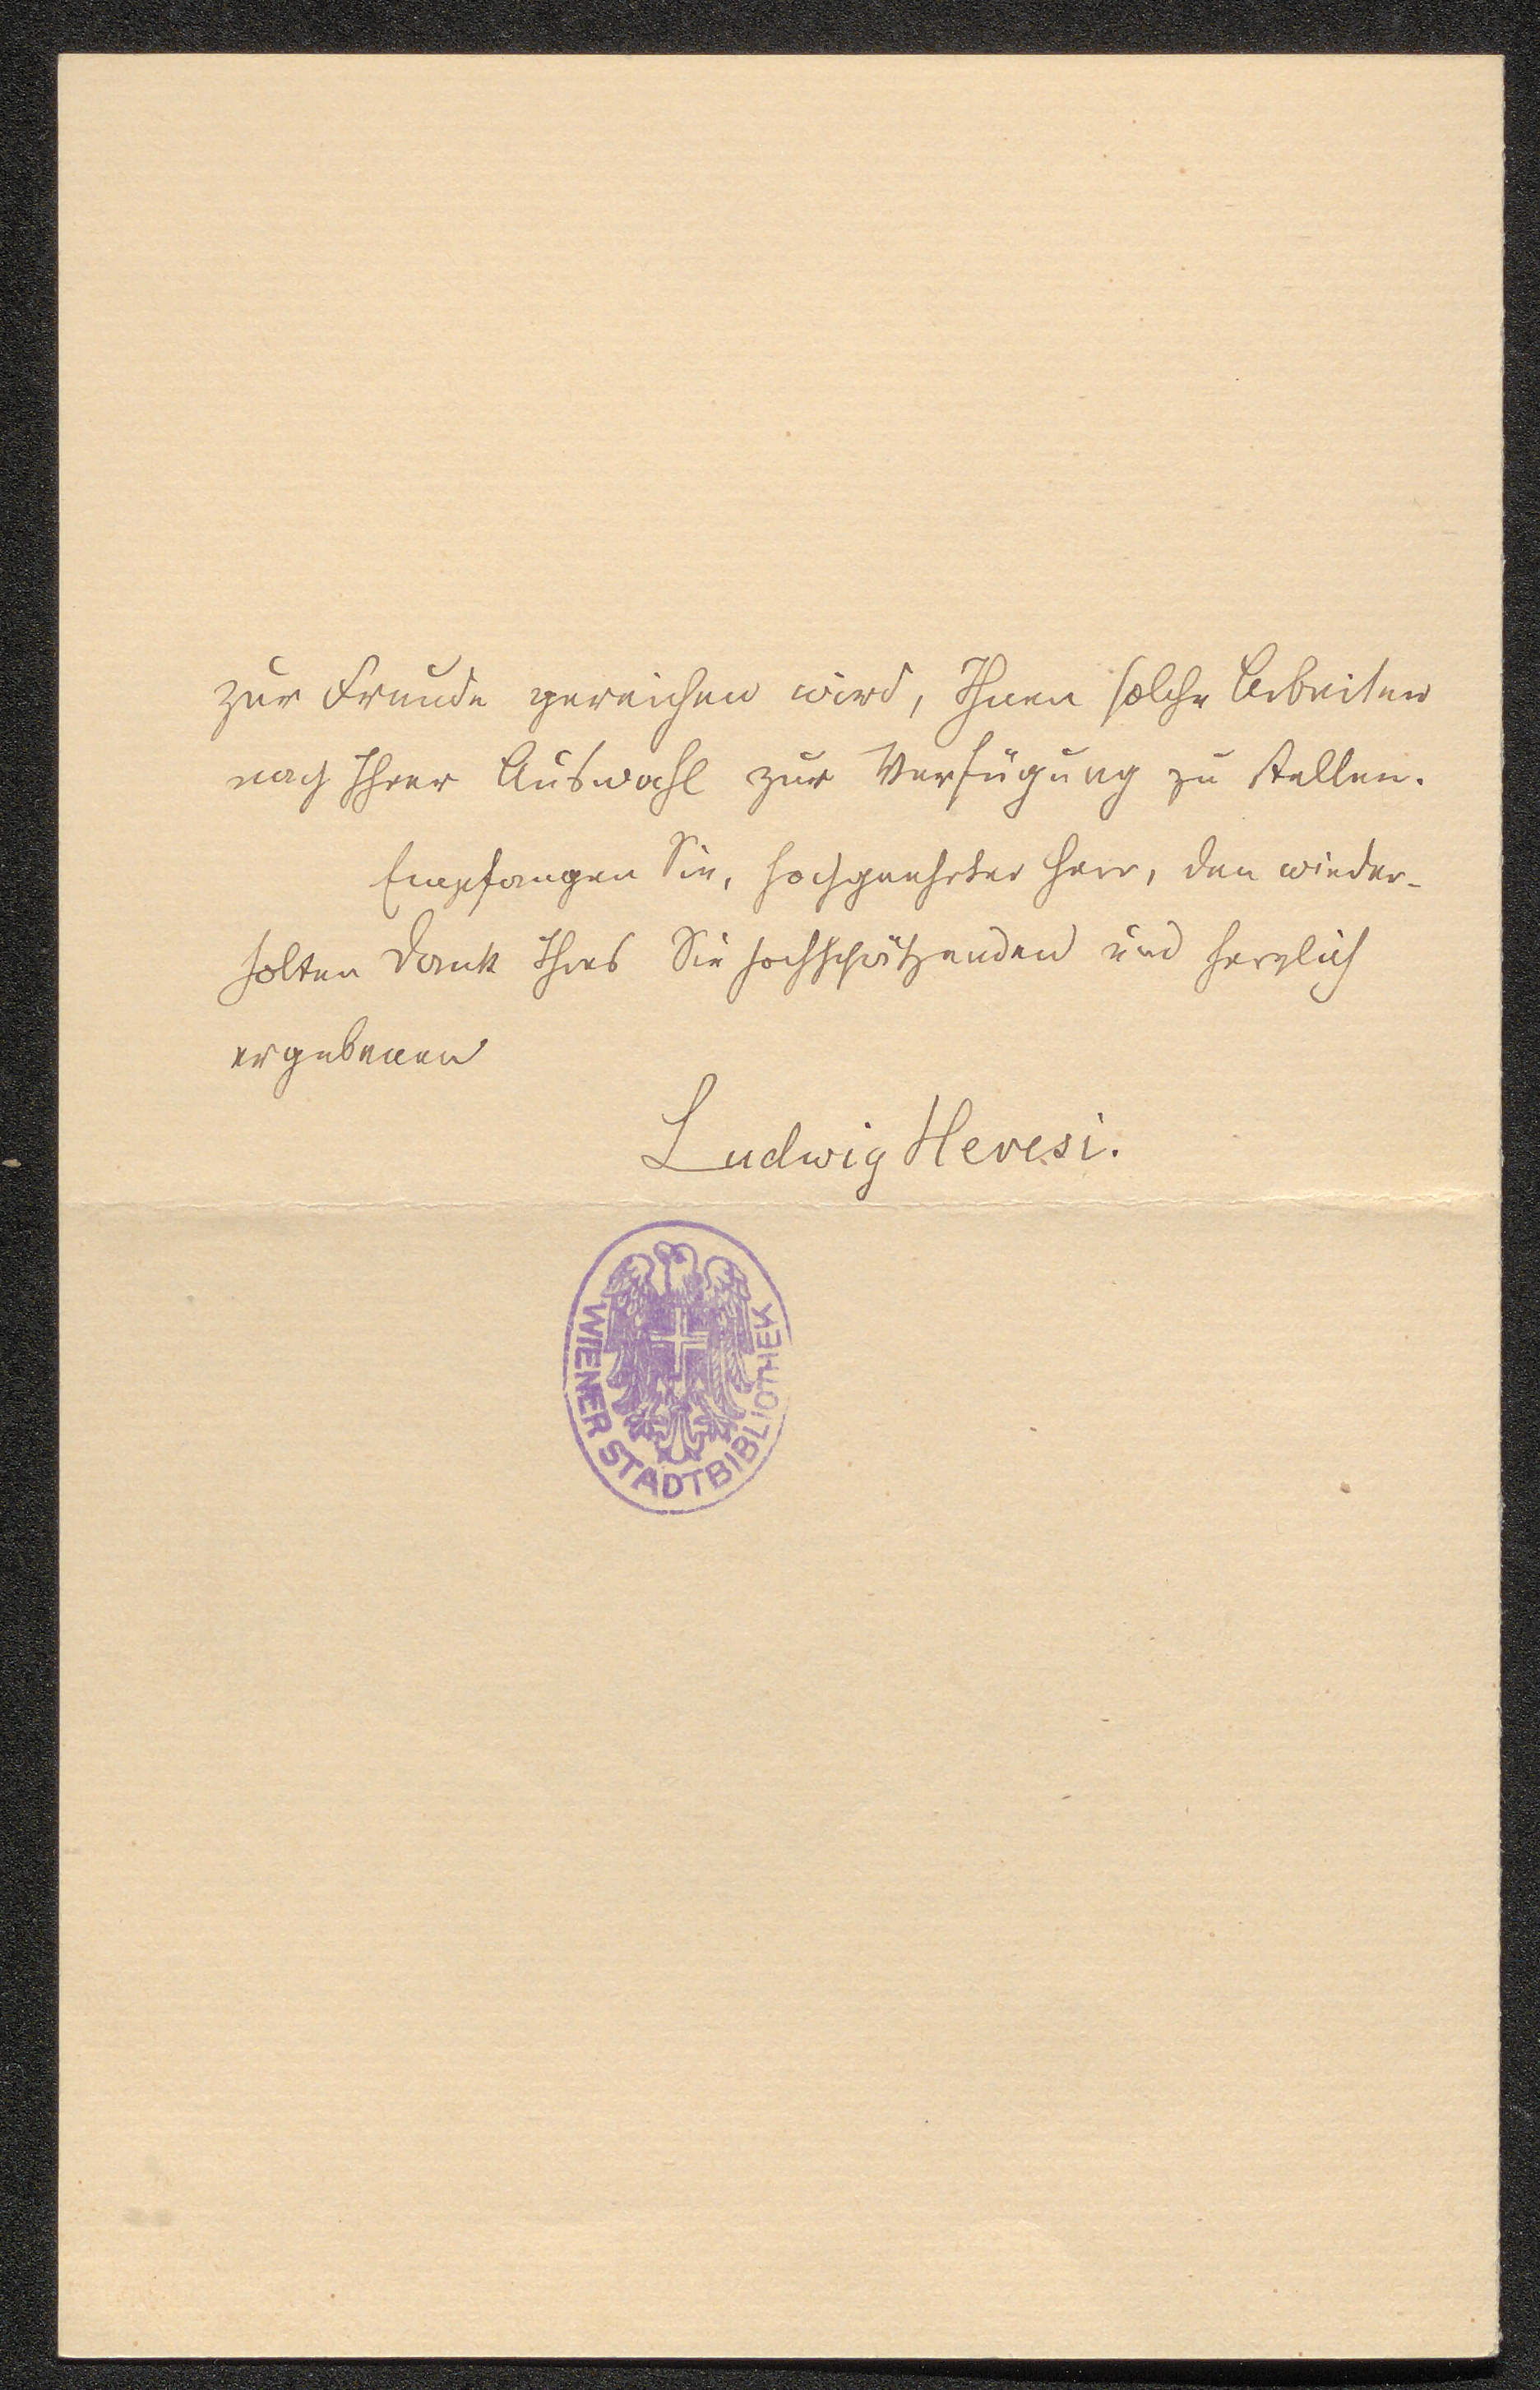 zur Freude gereichen wird, Ihnen solche Arbeiten
nach Ihrer Auswahl zur Verfügung zu stellen.
Empfangen Sie, hochgeehrter Herr, den wieder-
holten Dank Ihres Sie hochschätzenden und herzlich
ergebenen
Ludwig Hevesi.
WIENER STADTBIBLIOTHEK